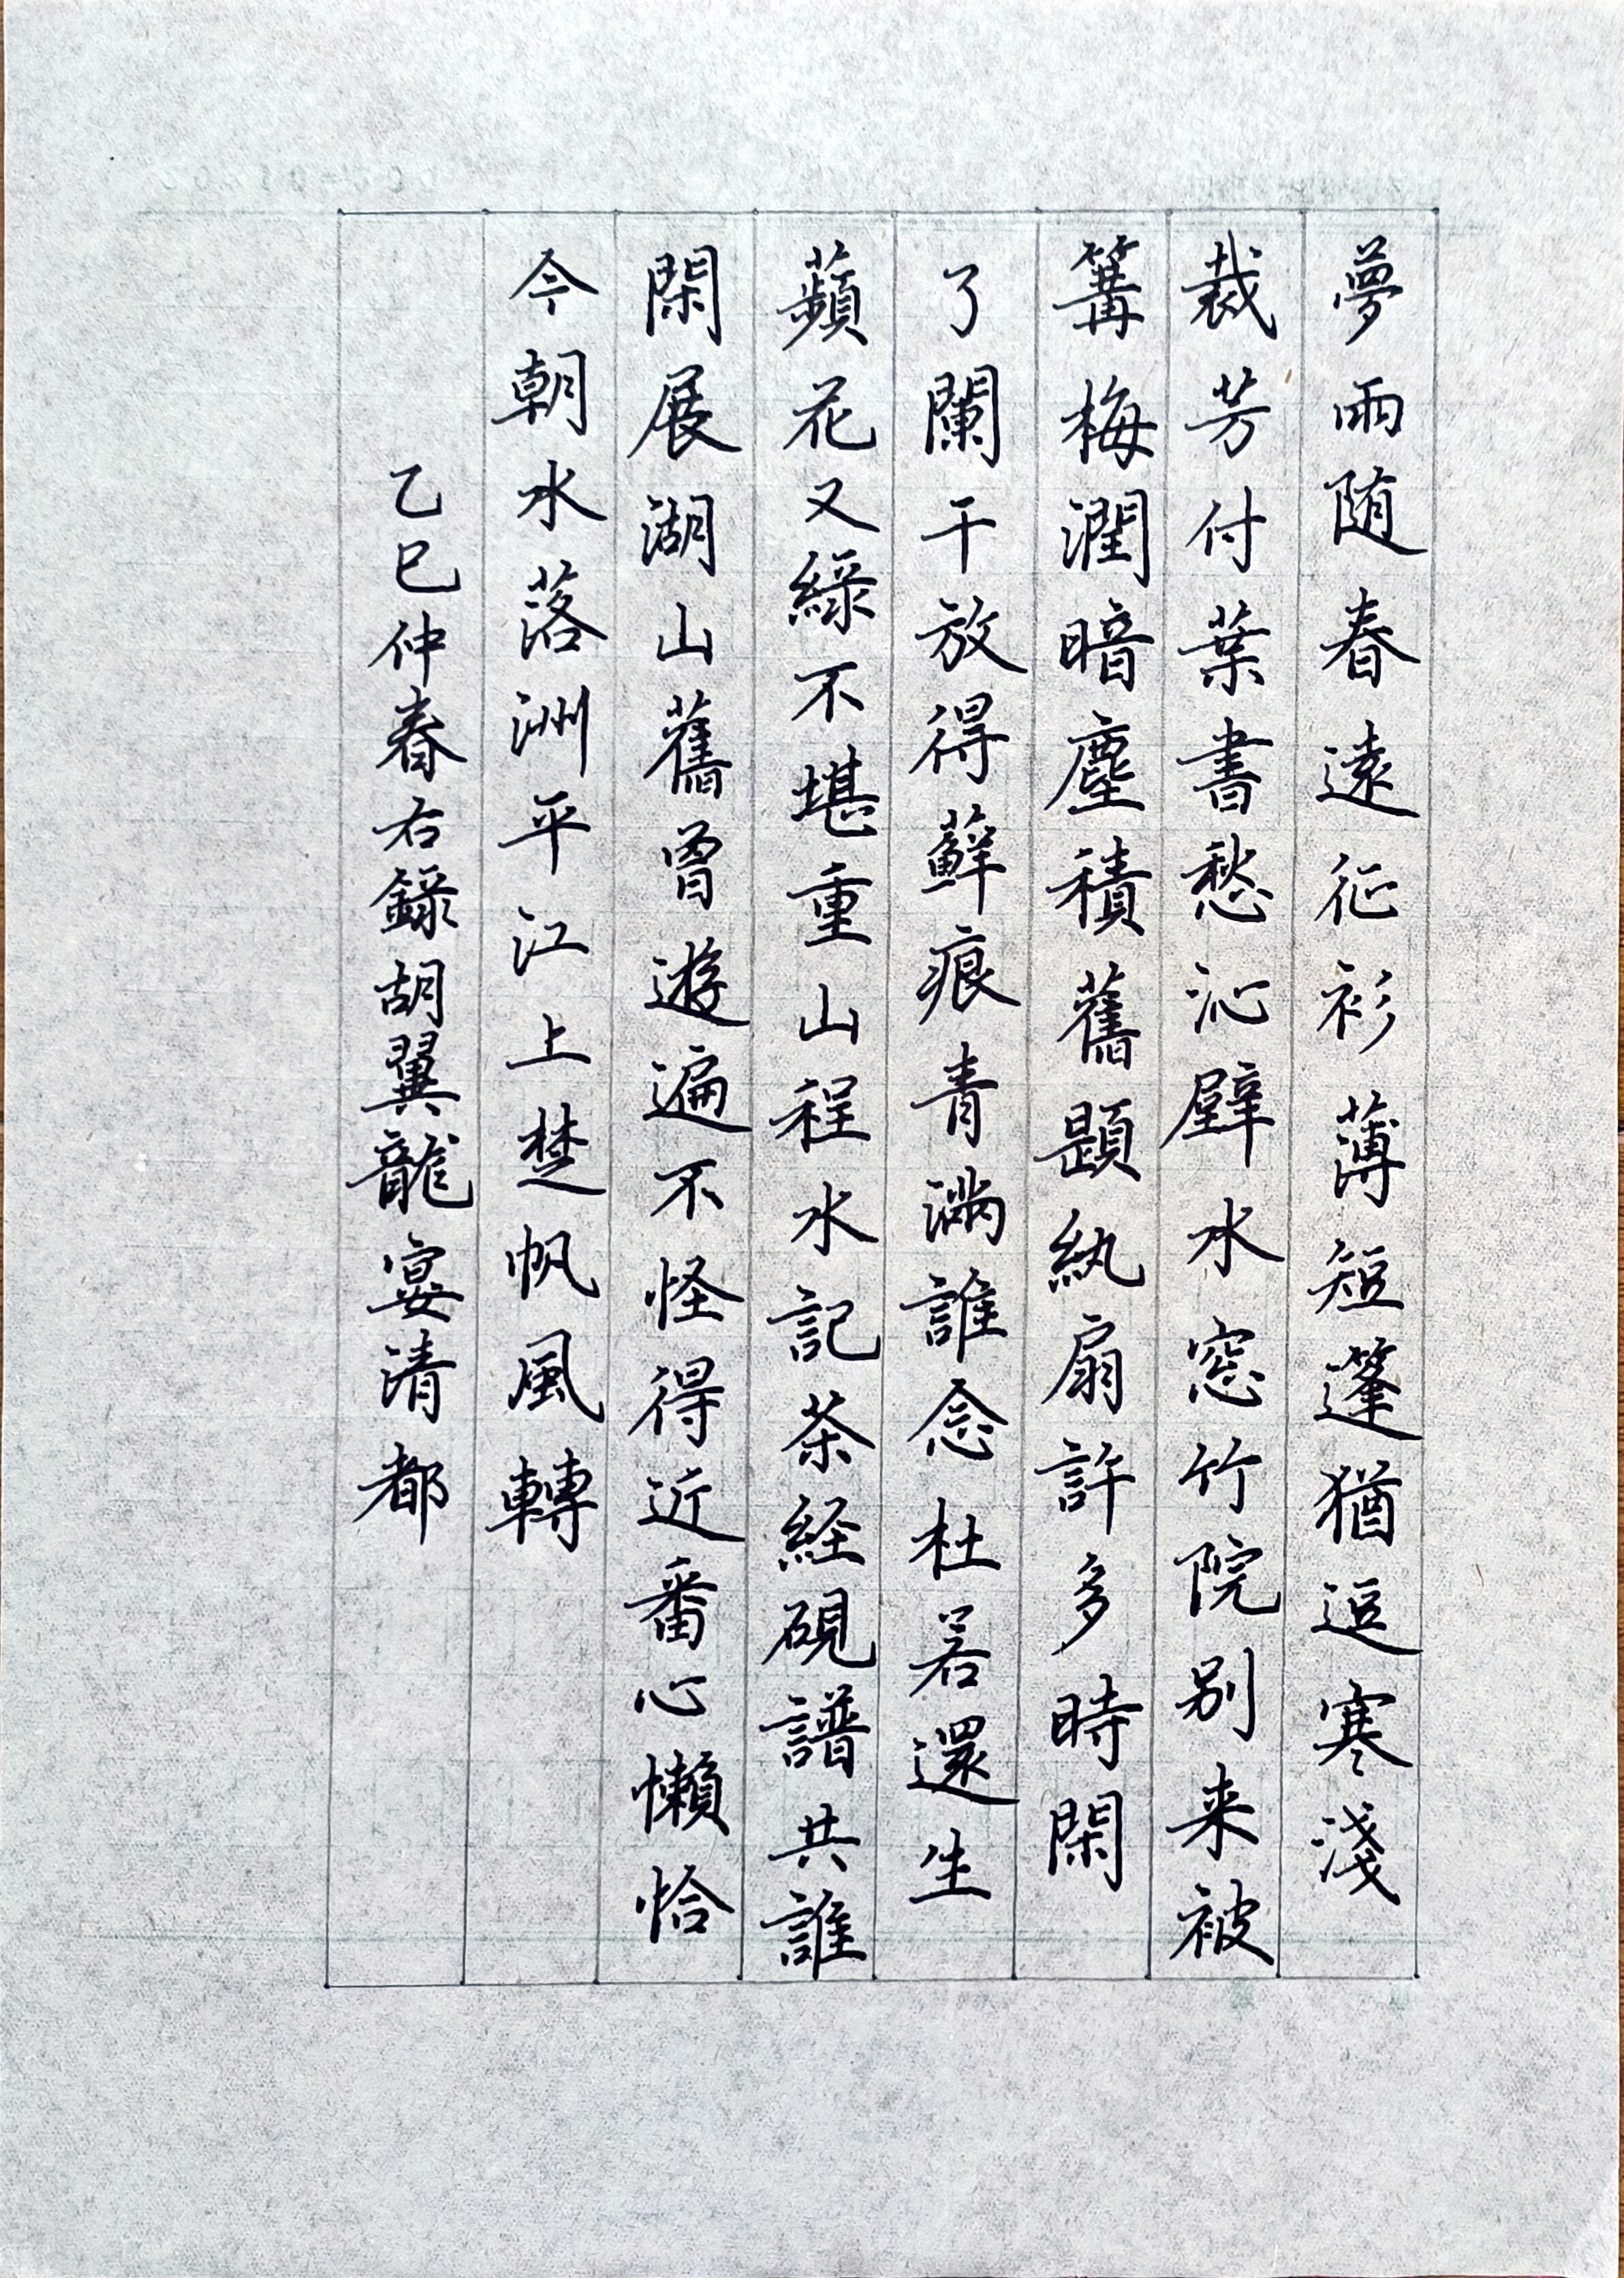 夢雨随春遠征衫薄短篷猶逗寒淺
裁芳付葉書愁沁壁水窓竹院别来被
篝梅潤暗塵積舊題紈扇許多時閑
了闌干放得蘚痕青滿誰念杜若還生
蘋花又綠不堪重山程水記茶経硯譜共誰
閑展湖山舊曾遊遍不怪得近番心懶恰
今朝水落洲平江上楚帆風轉
乙巳仲春右錄胡翼龍宴清都